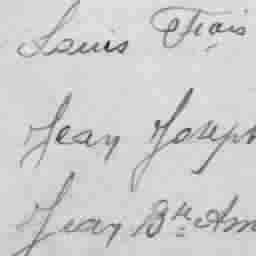 Louis Frais
Jean Joseph
Jean Bte Am